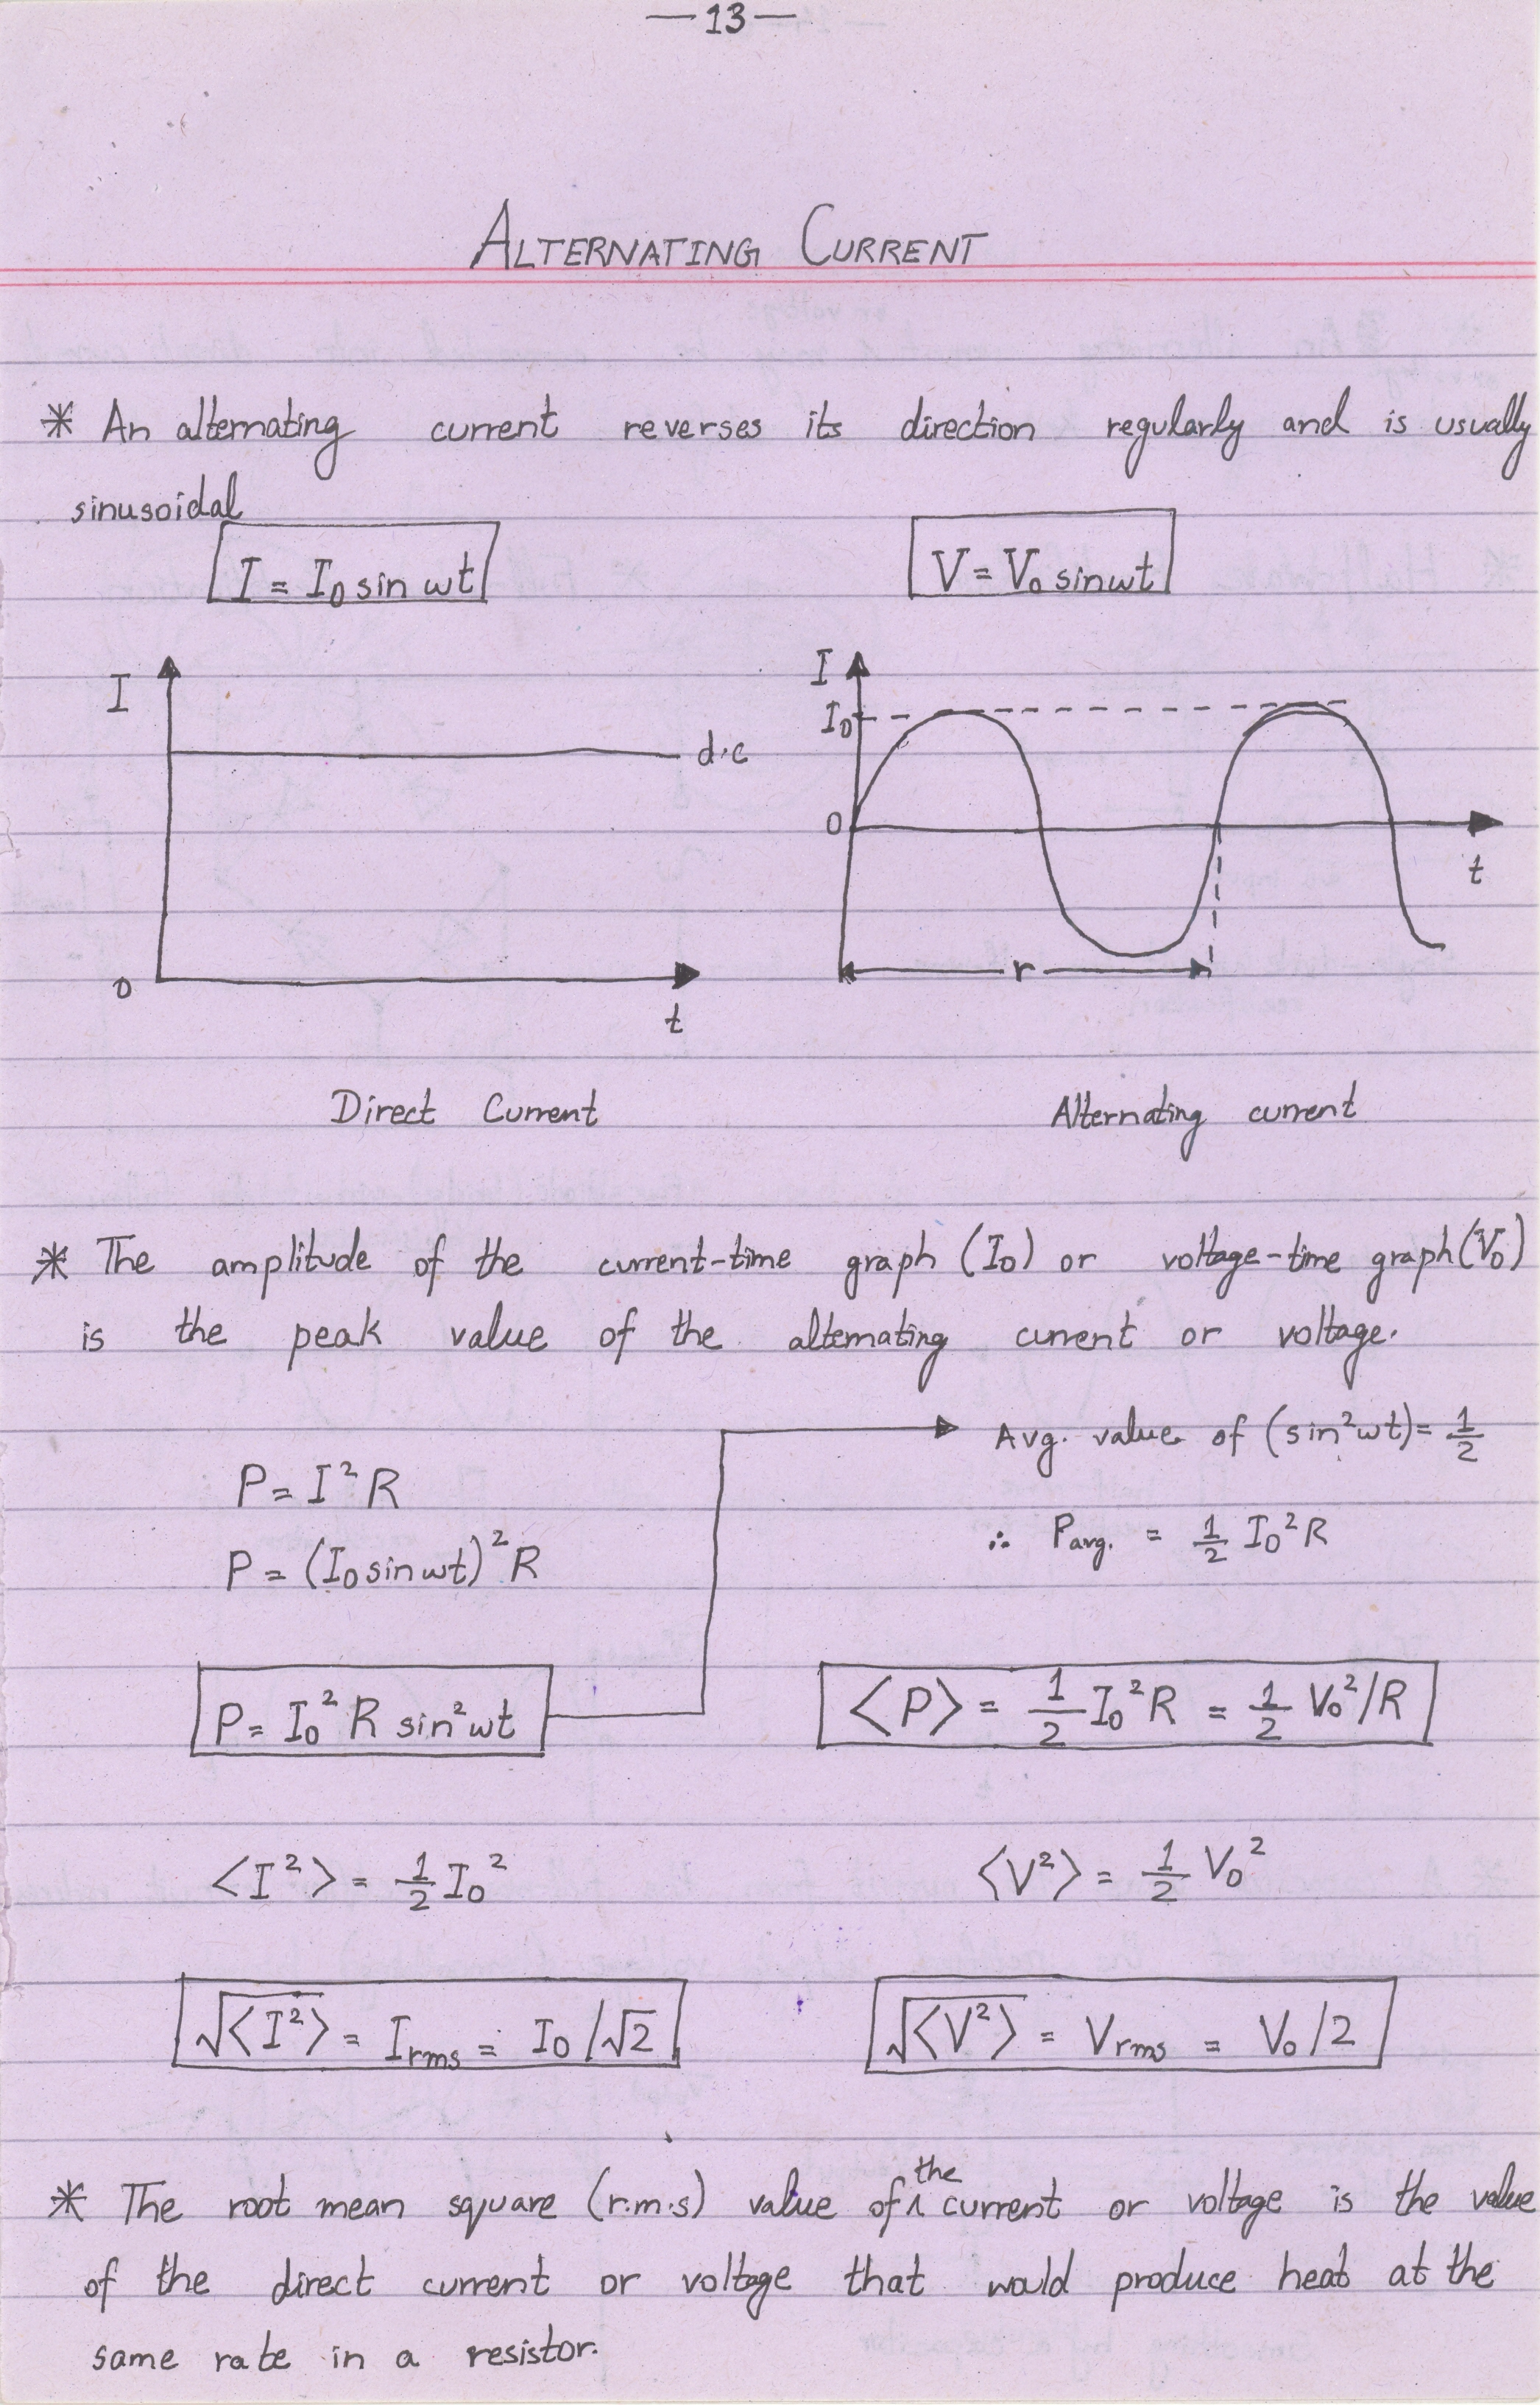 —13—
ALTERNATING CURRENT
* An alternating current reverses its direction regularly and is usually
sinusoidal
I = I₀ sin ωt
V = V₀ sinωt
I
d.c
0
t
I
I₀
0
t
r
Direct Current
Alternating current
* The amplitude of the current-time graph (I₀) or voltage-time graph (V₀)
is the peak value of the alternating current or voltage.
P = I² R
P = (I₀ sin ωt)² R
P = I₀² R sin²ωt
Avg. value of (sin²ωt) = 1/2
∴ Pavg. = 1/2 I₀² R
<P> = 1/2 I₀² R = 1/2 V₀²/R
<I²> = 1/2 I₀²
<V²> = 1/2 V₀²
√<I²> = Irms = I₀/√2
√<V²> = Vrms = V₀/2
* The root mean square (r.m.s) value of the current or voltage is the value
of the direct current or voltage that would produce heat at the
same rate in a resistor.